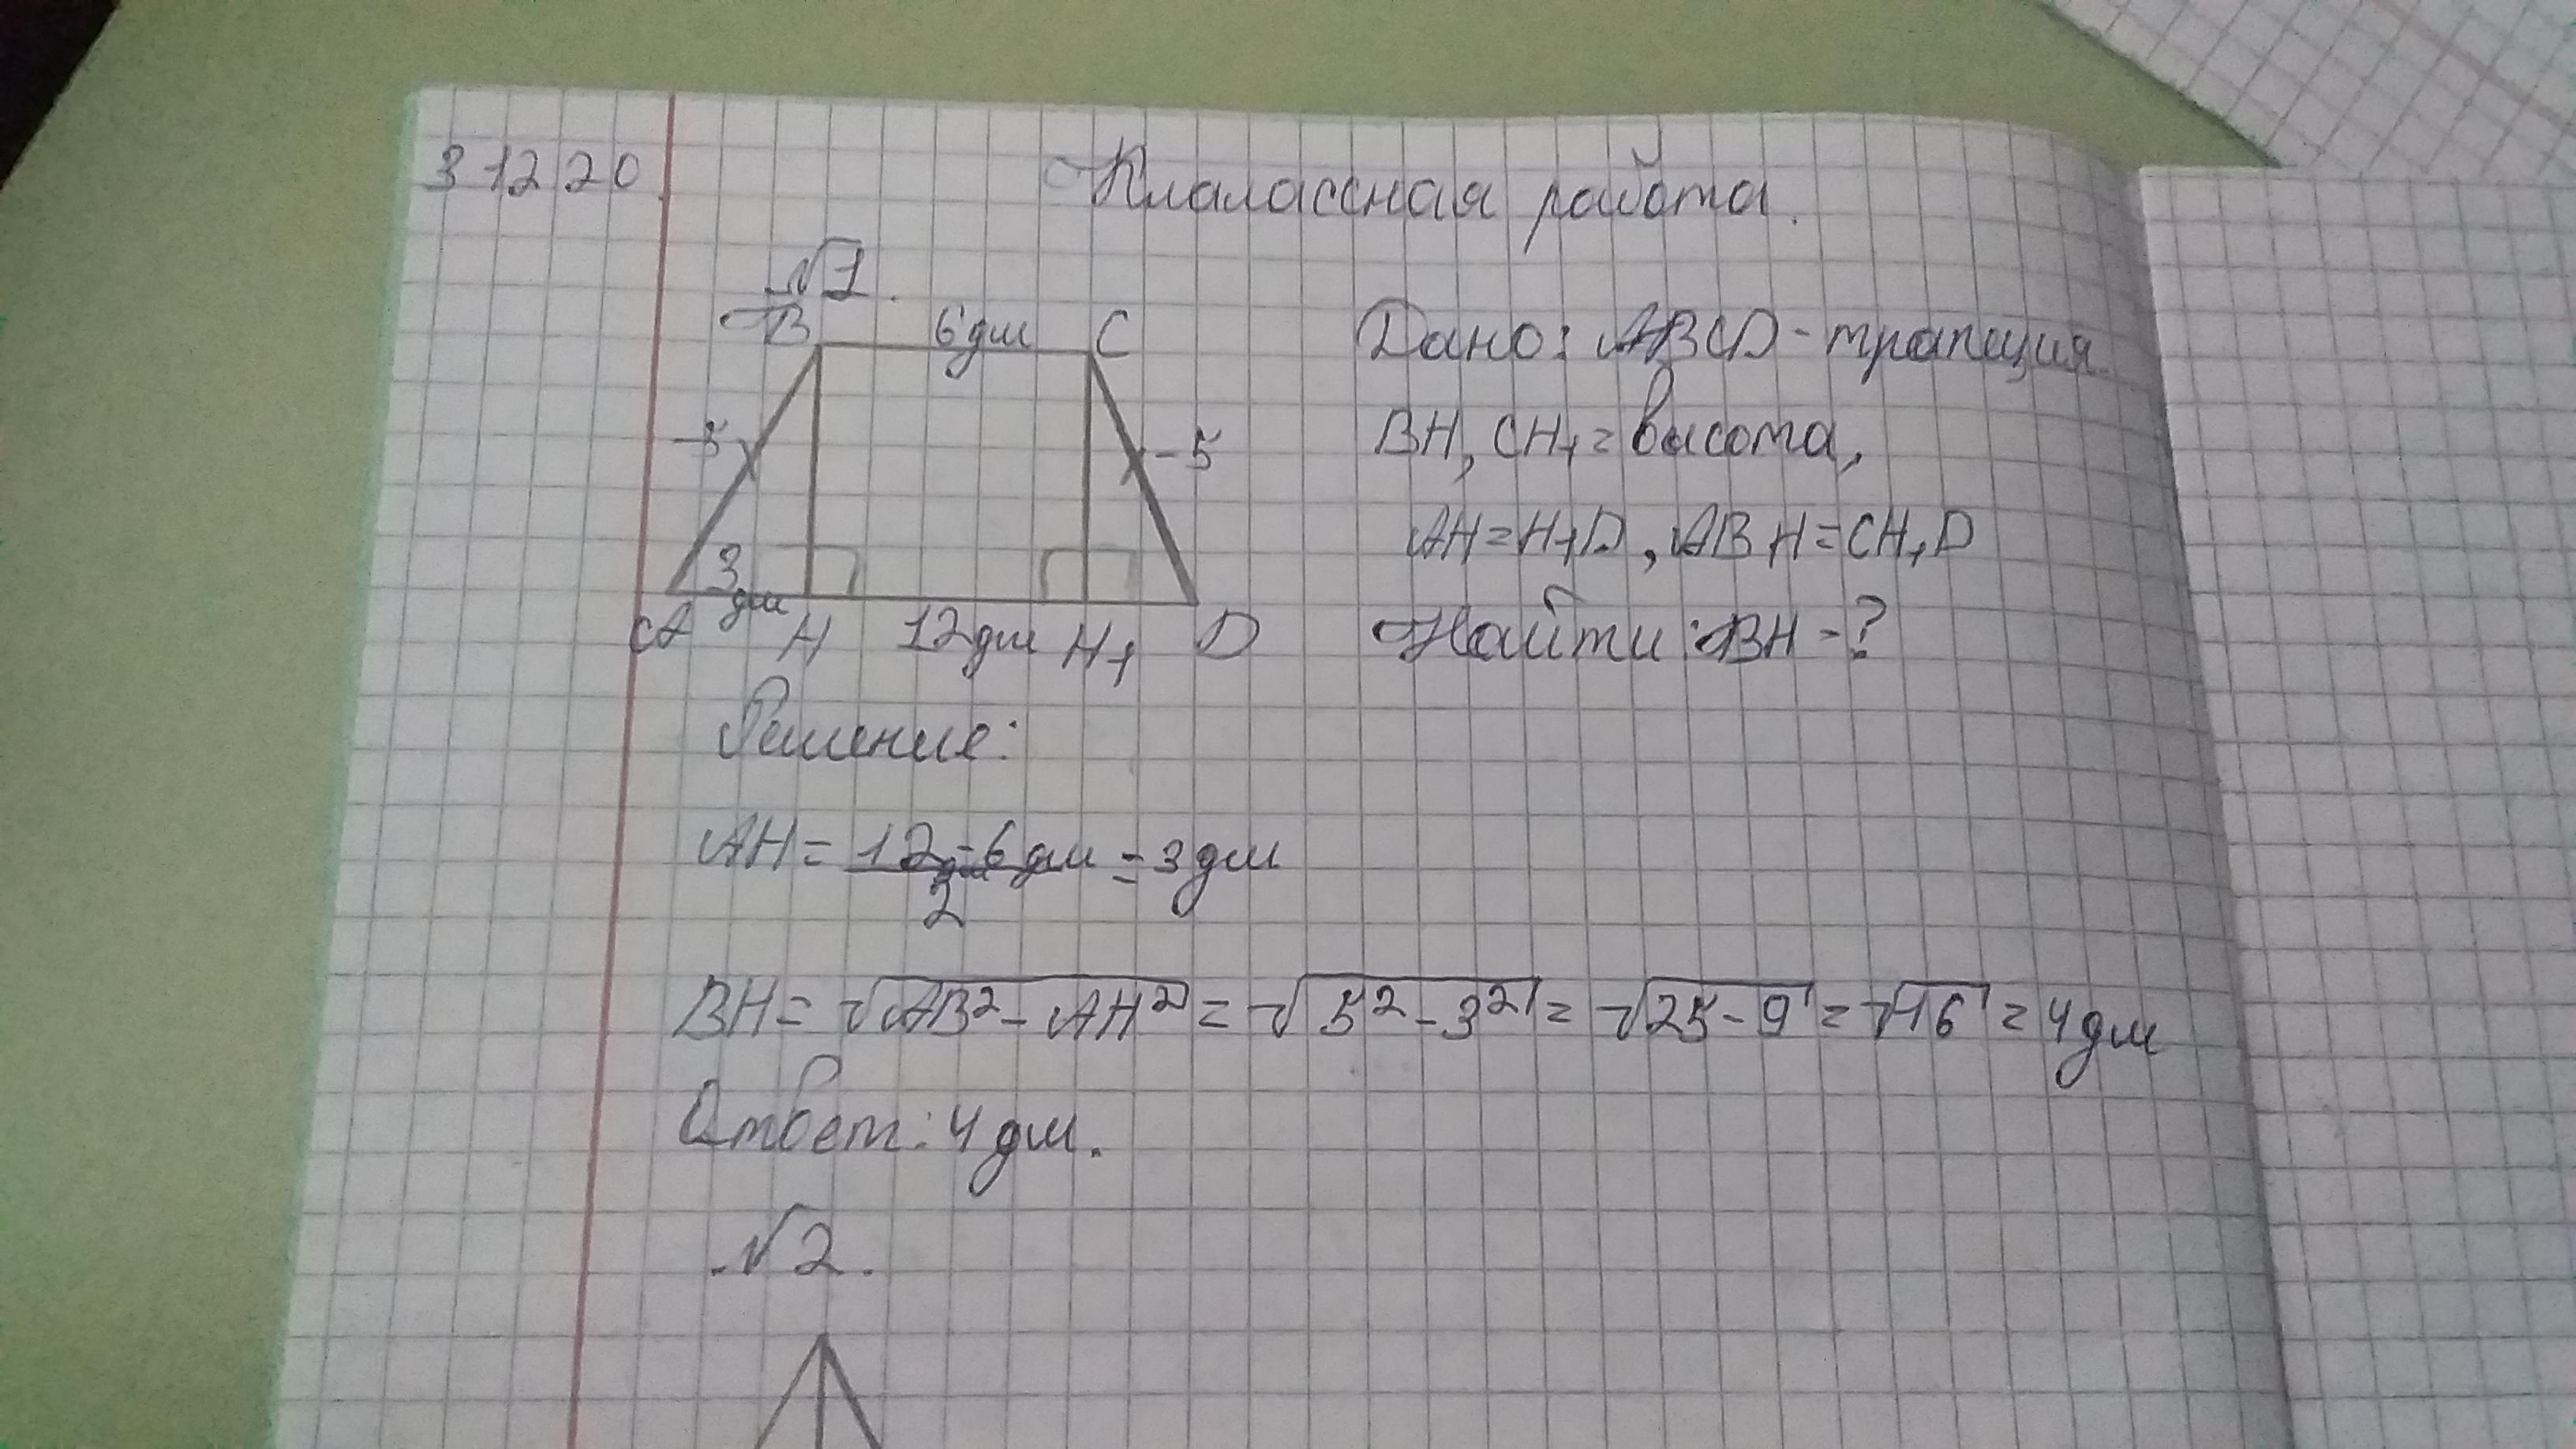 3 12 20
Клалассная работа.
№1.
B 6дм C
5 5
3 дм
A H 12дм H₁ D
Дано: ABCD - трапеция.
BH, CH₁ = высота,
AH = H₁D, ABH = CH₁D
Найти: BH - ?
Решение:
AH = (12-6дм)/2 = 3дм
BH = √(AB² - AH²) = √(5² - 3²) = √(25 - 9) = √16 = 4дм
Ответ: 4 дм.
№2.